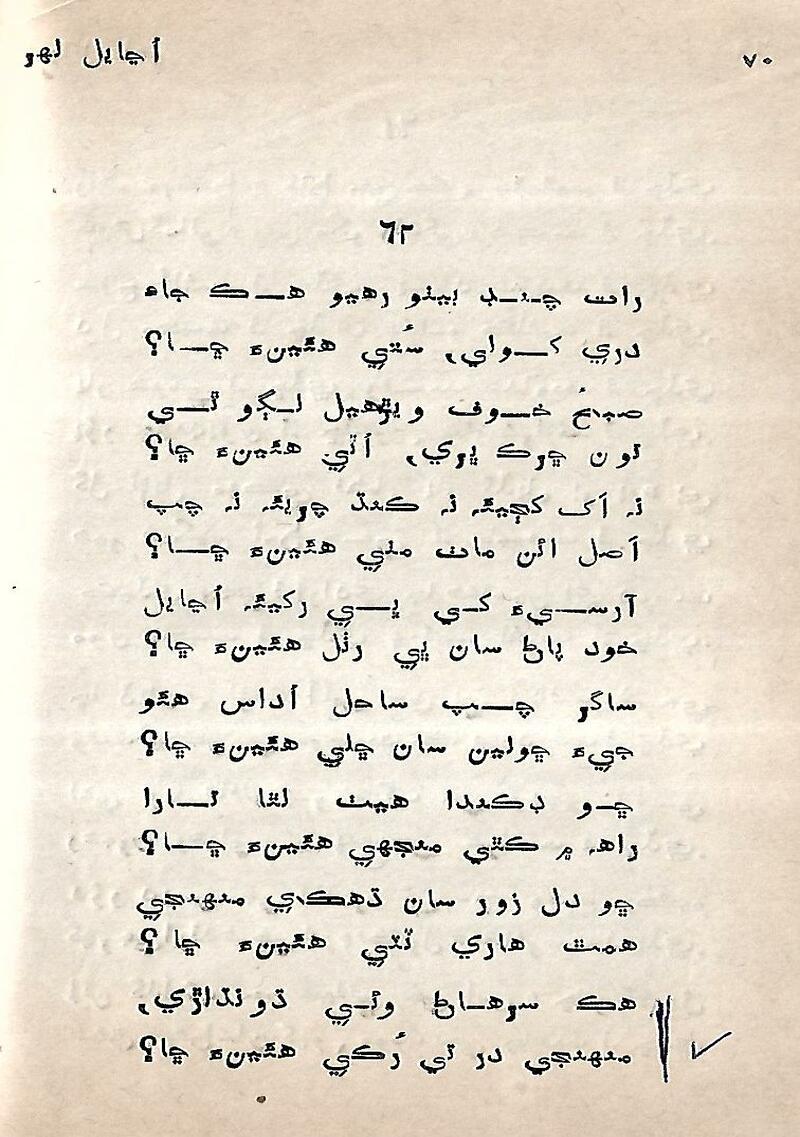 ٧٠
اڃايل لهر
٦٢
رات چنڊ بيٺو رهيو هڪ جاءِ
دري کولي، سُتي هئينءَ ڇا؟
صبحُ خوف ويڙهيل لڳو ٿي
تون ڇرڪ ڀري، اُٿي هئينءَ ڇا؟
نہ اَک کڄيئہ نہ ڪنڌ چوريئہ نہ چپ
اَصل ائن مات مٺي هئينءَ ڇا؟
آرسيءَ کي ڀي رکيئہ اُڃايل
خود پاڻ سان ڀي رٺل هئينءَ ڇا؟
ساگر چپ ساحل اُداس هئو
جيءَ ڇولين سان ڇلي هئينءَ ڇا؟
ڇو ڊڪندا هيٺ لٿا تارا
راهہ ۾ ڪٿي منجهي هئينءَ ڇا؟
ڇو دل زور سان ڌڙڪي منهنجي
همٿ هاري ٽٽي هئينءَ ڇا؟
هڪ سرهاڻ وئي ڌونڌاڙي،
منهنجي در تي رُڪي هئينءَ ڇا؟